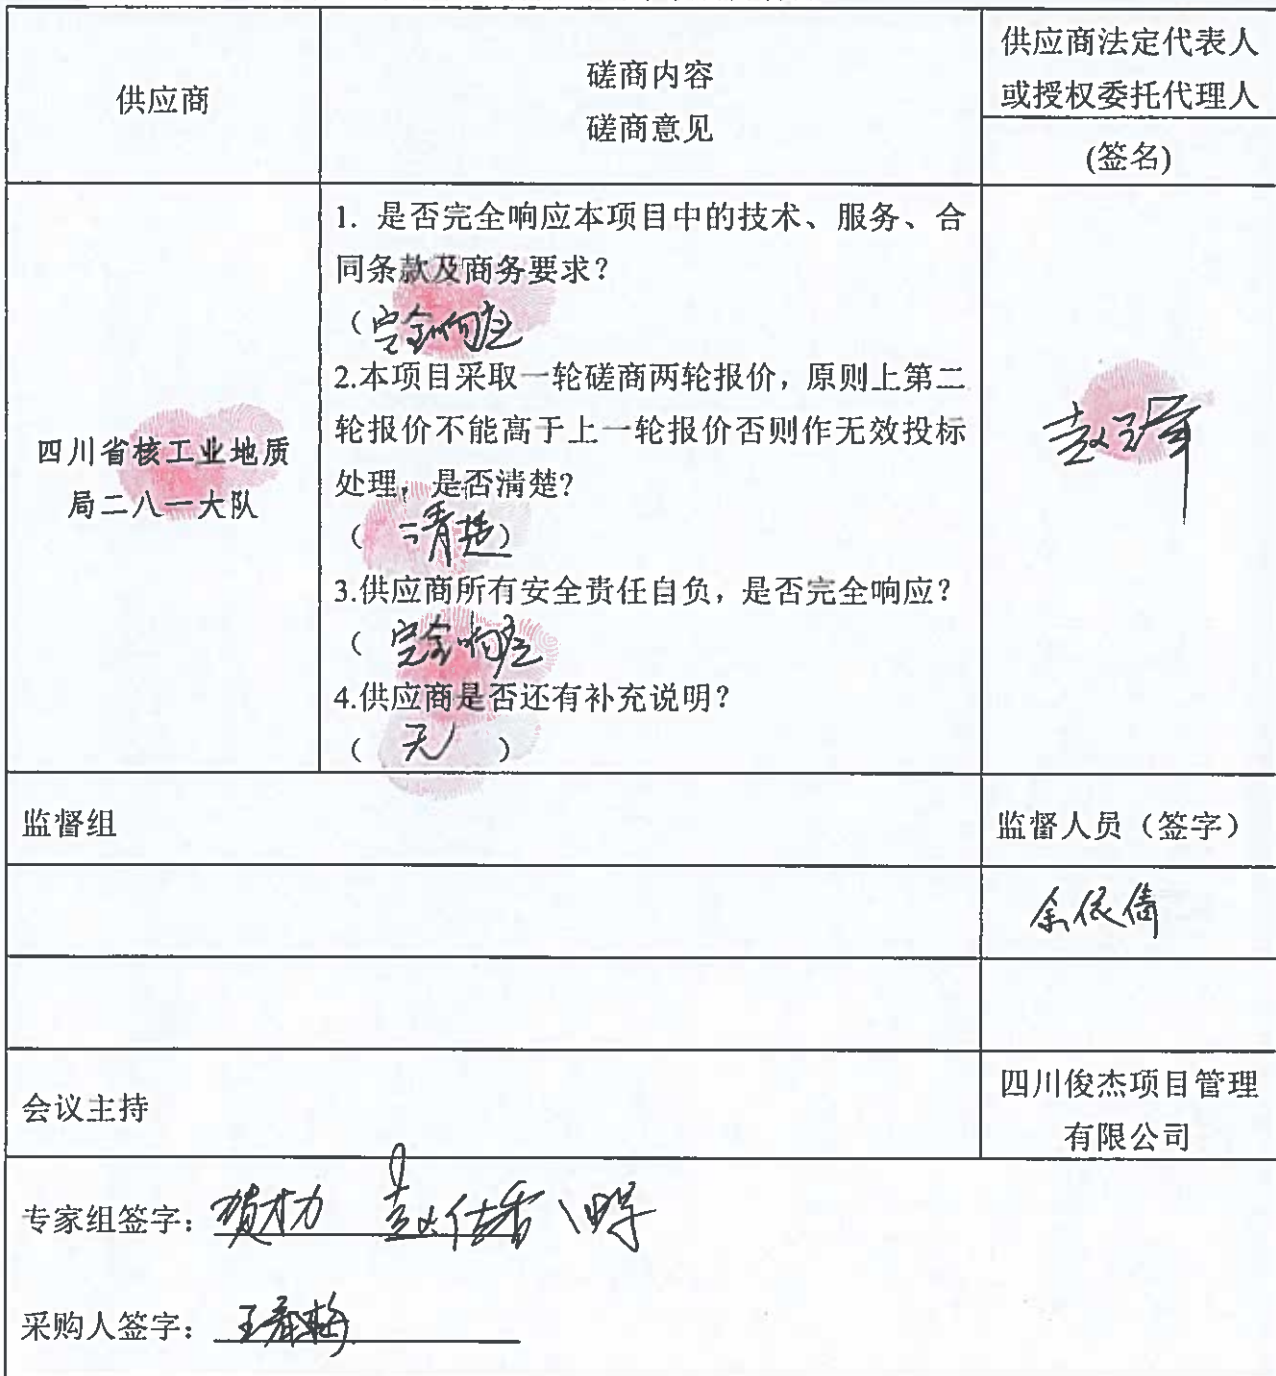 供应商
磋商内容
磋商意见
供应商法定代表人
或授权委托代理人
(签名)
四川省核工业地质
局二八一大队
1. 是否完全响应本项目中的技术、服务、合
同条款及商务要求？
（完全响应
2.本项目采取一轮磋商两轮报价，原则上第二
轮报价不能高于上一轮报价否则作无效投标
处理，是否清楚?
（ 清楚）
3.供应商所有安全责任自负，是否完全响应？
（ 完全响应
4.供应商是否还有补充说明？
（ 无 ）
监督组
监督人员（签字）
余依倩
会议主持
四川俊杰项目管理
有限公司
专家组签字：
采购人签字：